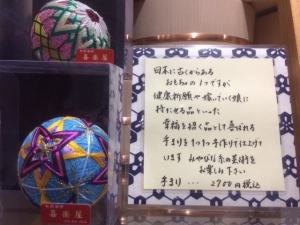 喜楽屋
喜楽屋
日本に古くからある
おもちゃの1つですが
健康祈願や嫁いでいく娘に
持たせる品といった
幸福を招く品として喜ばれる
手まりを1つ1つ手作りで仕上げて
います みやびな糸の芸術を
お楽しみ下さい
手まり… 2700円税込